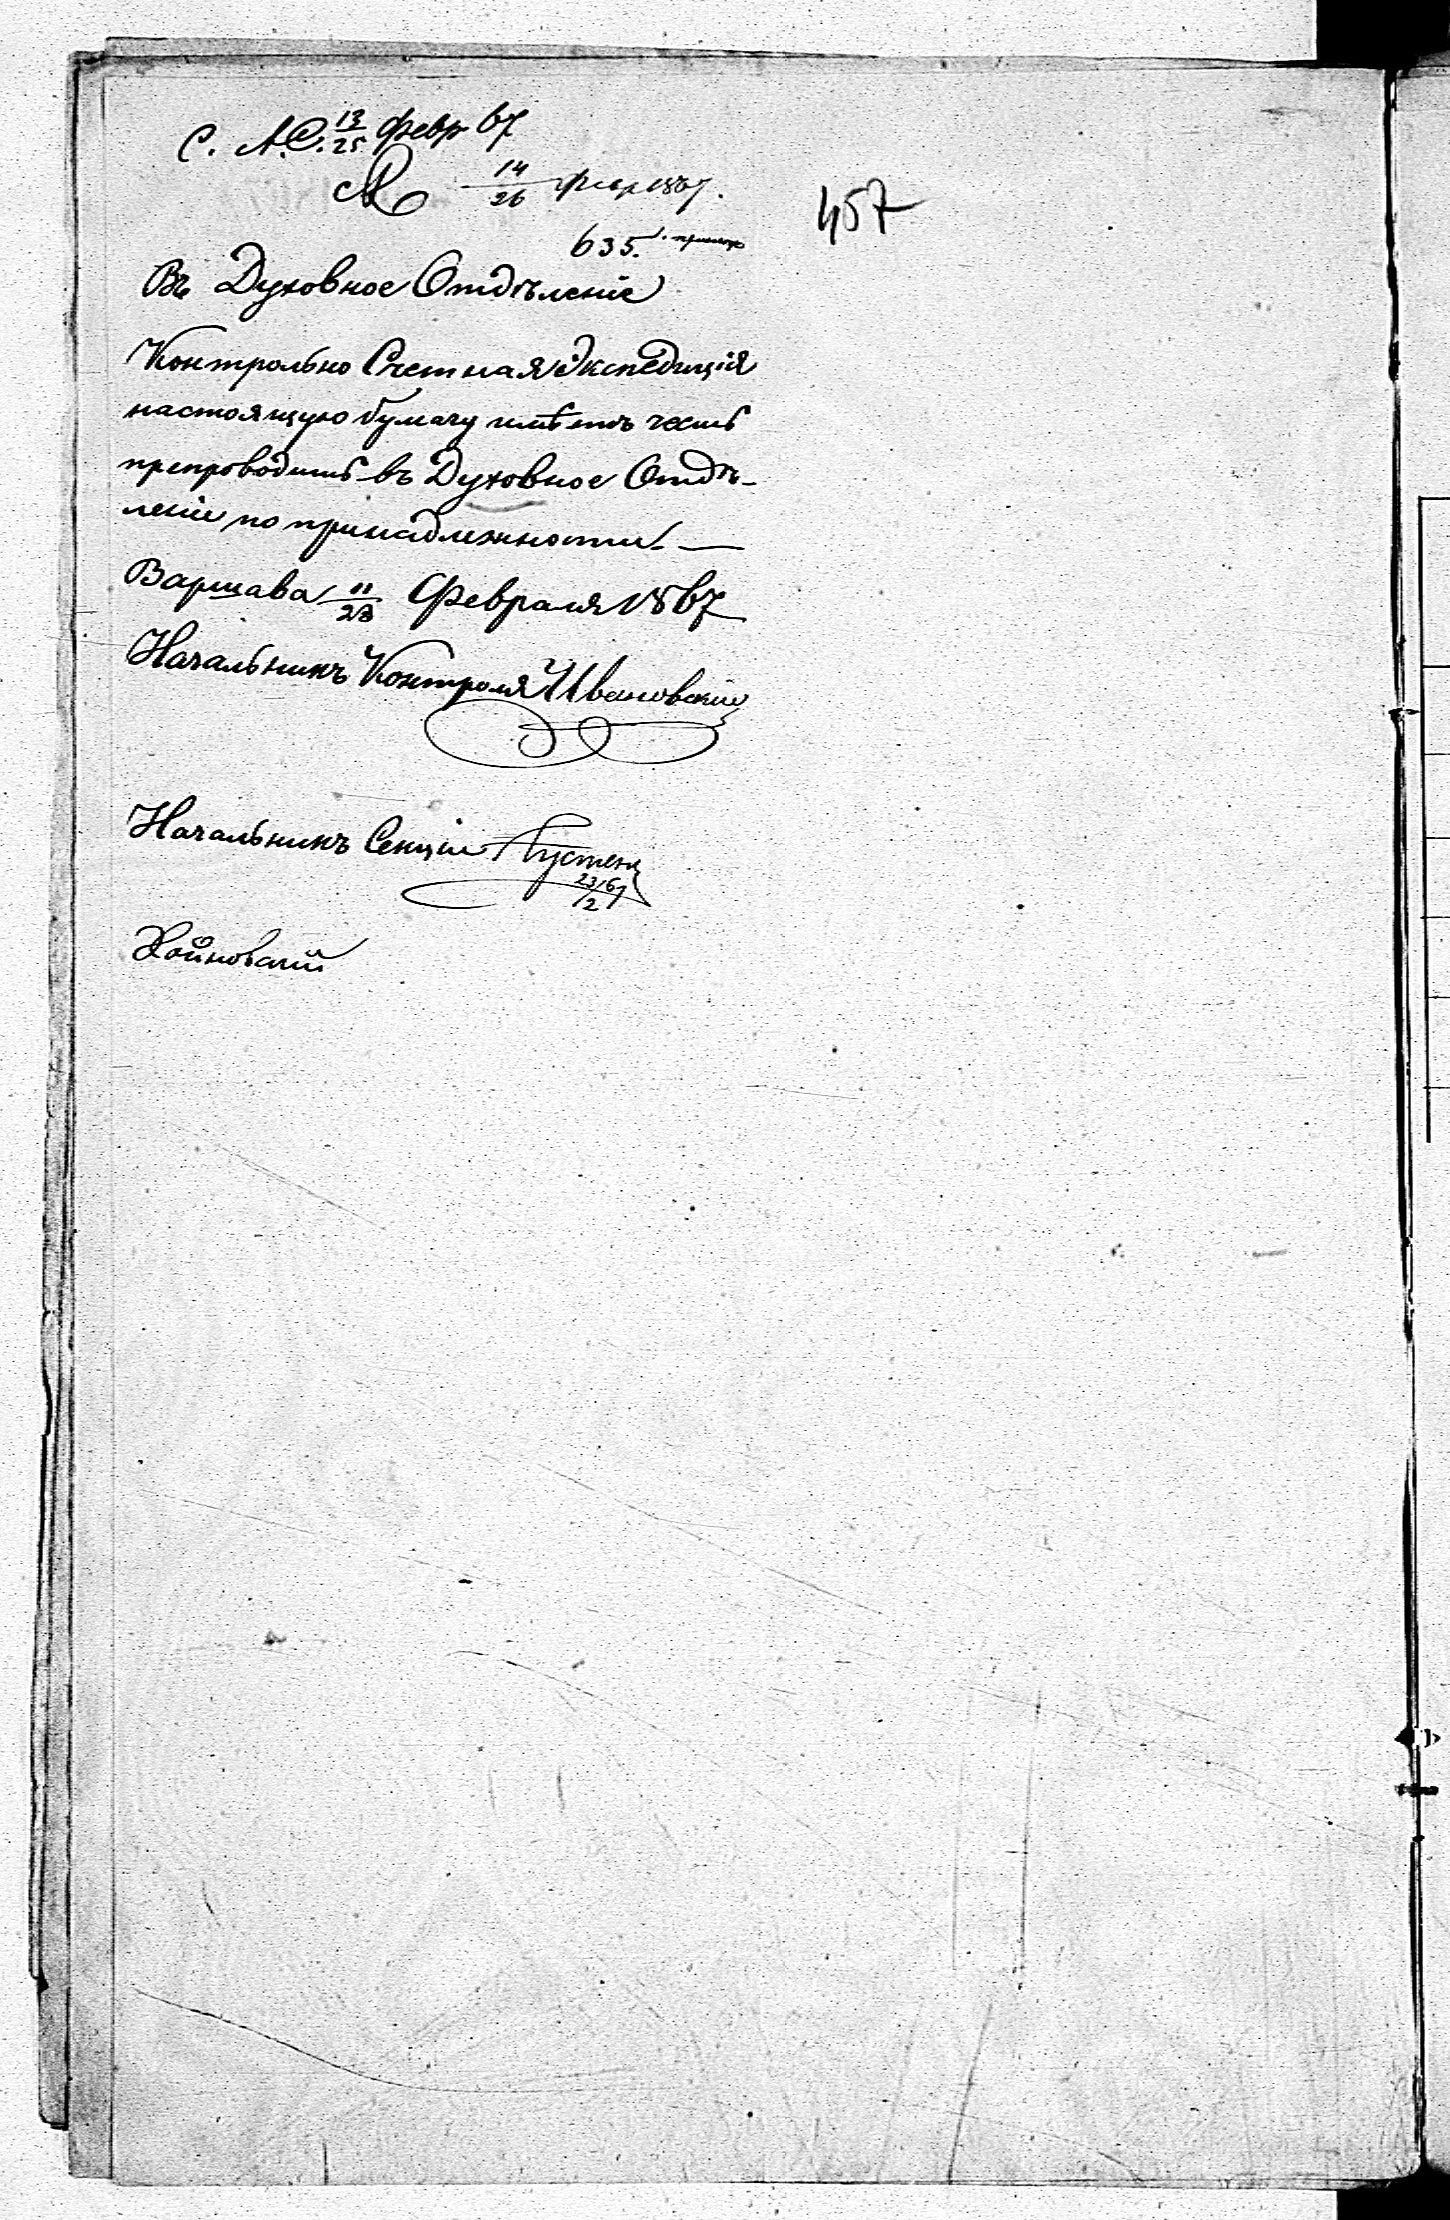 С. А.С. 13/25 февр 67
14/26 февр 1867.
457
635.
Въ Духовное Отдѣленіе
Контрольно Счетная Экспедиція
настоящую бумагу имѣетъ честь
препроводить въ Духовное Отдѣ-
леніе по принадлежности. —
Варшава 11/23 Февраля 1867
Начальникъ Контроля Ивановскій
Начальникъ Секціи
23/2 67
Хойновскій